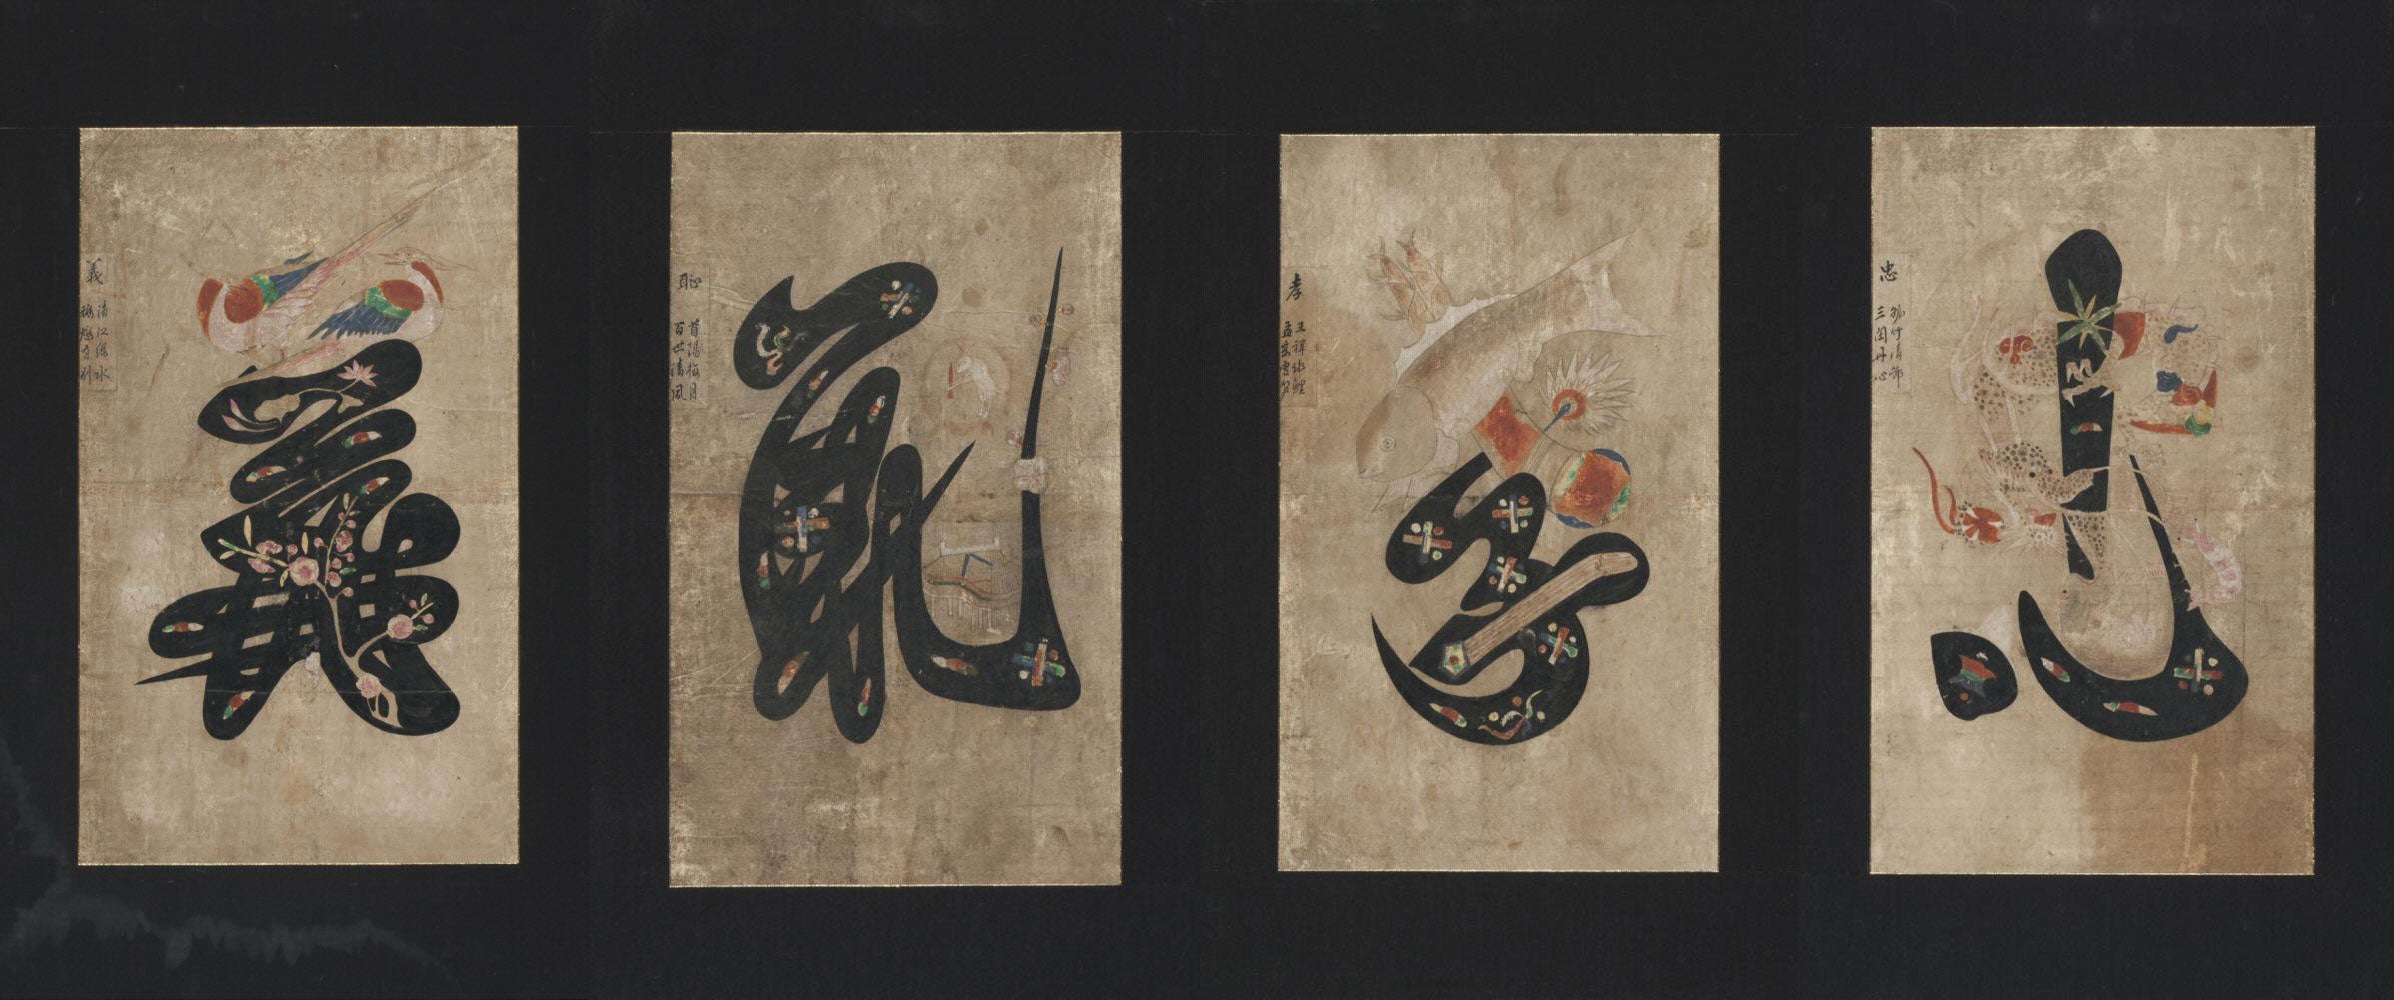 義
清江綠水
義
恥
首陽梅月
百世清風
恥
孝
王祥氷鯉
孟宗雪筍
孝
忠
孤竹清節
三閭丹心
忠